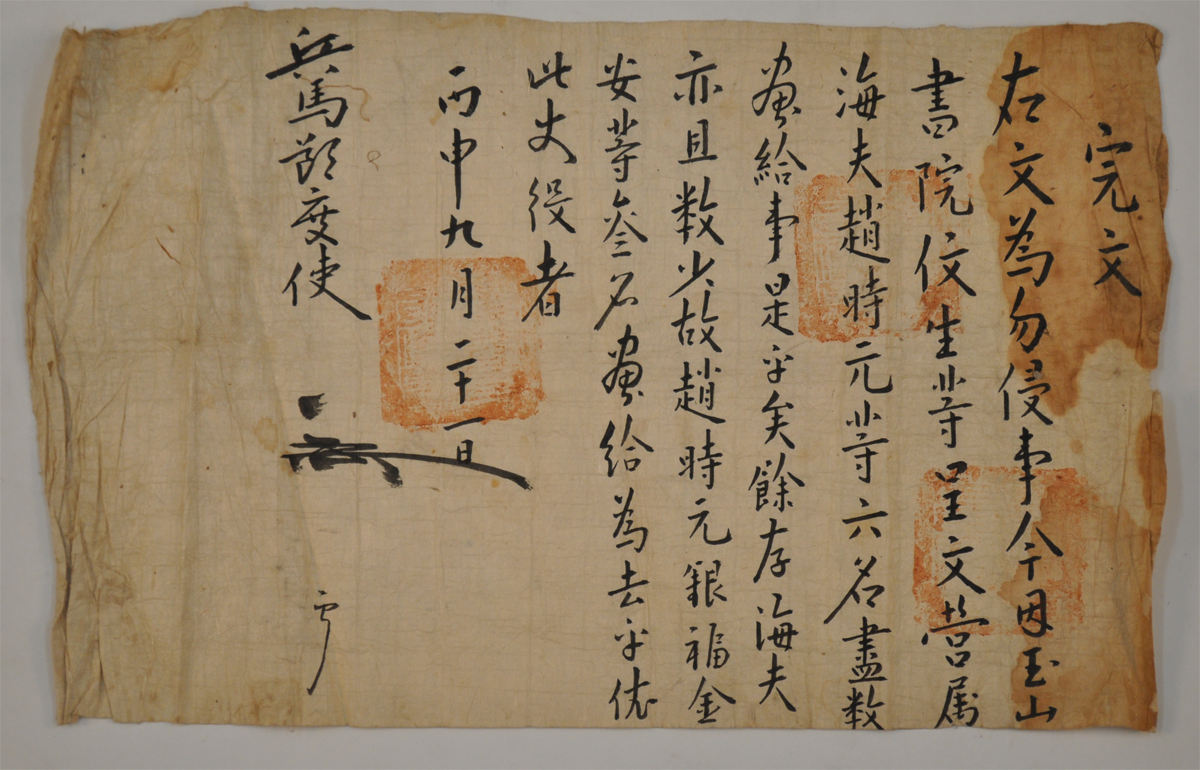 完文
右文為勿侵事今因玉山
書院儒生等呈文營属
海夫趙時元等六名盡數
畫給事是乎矣餘存海夫
亦且数少故趙時元銀福金
安等叄名畫給為去乎依
此丈役者
丙申九月二十一日
兵馬節度使